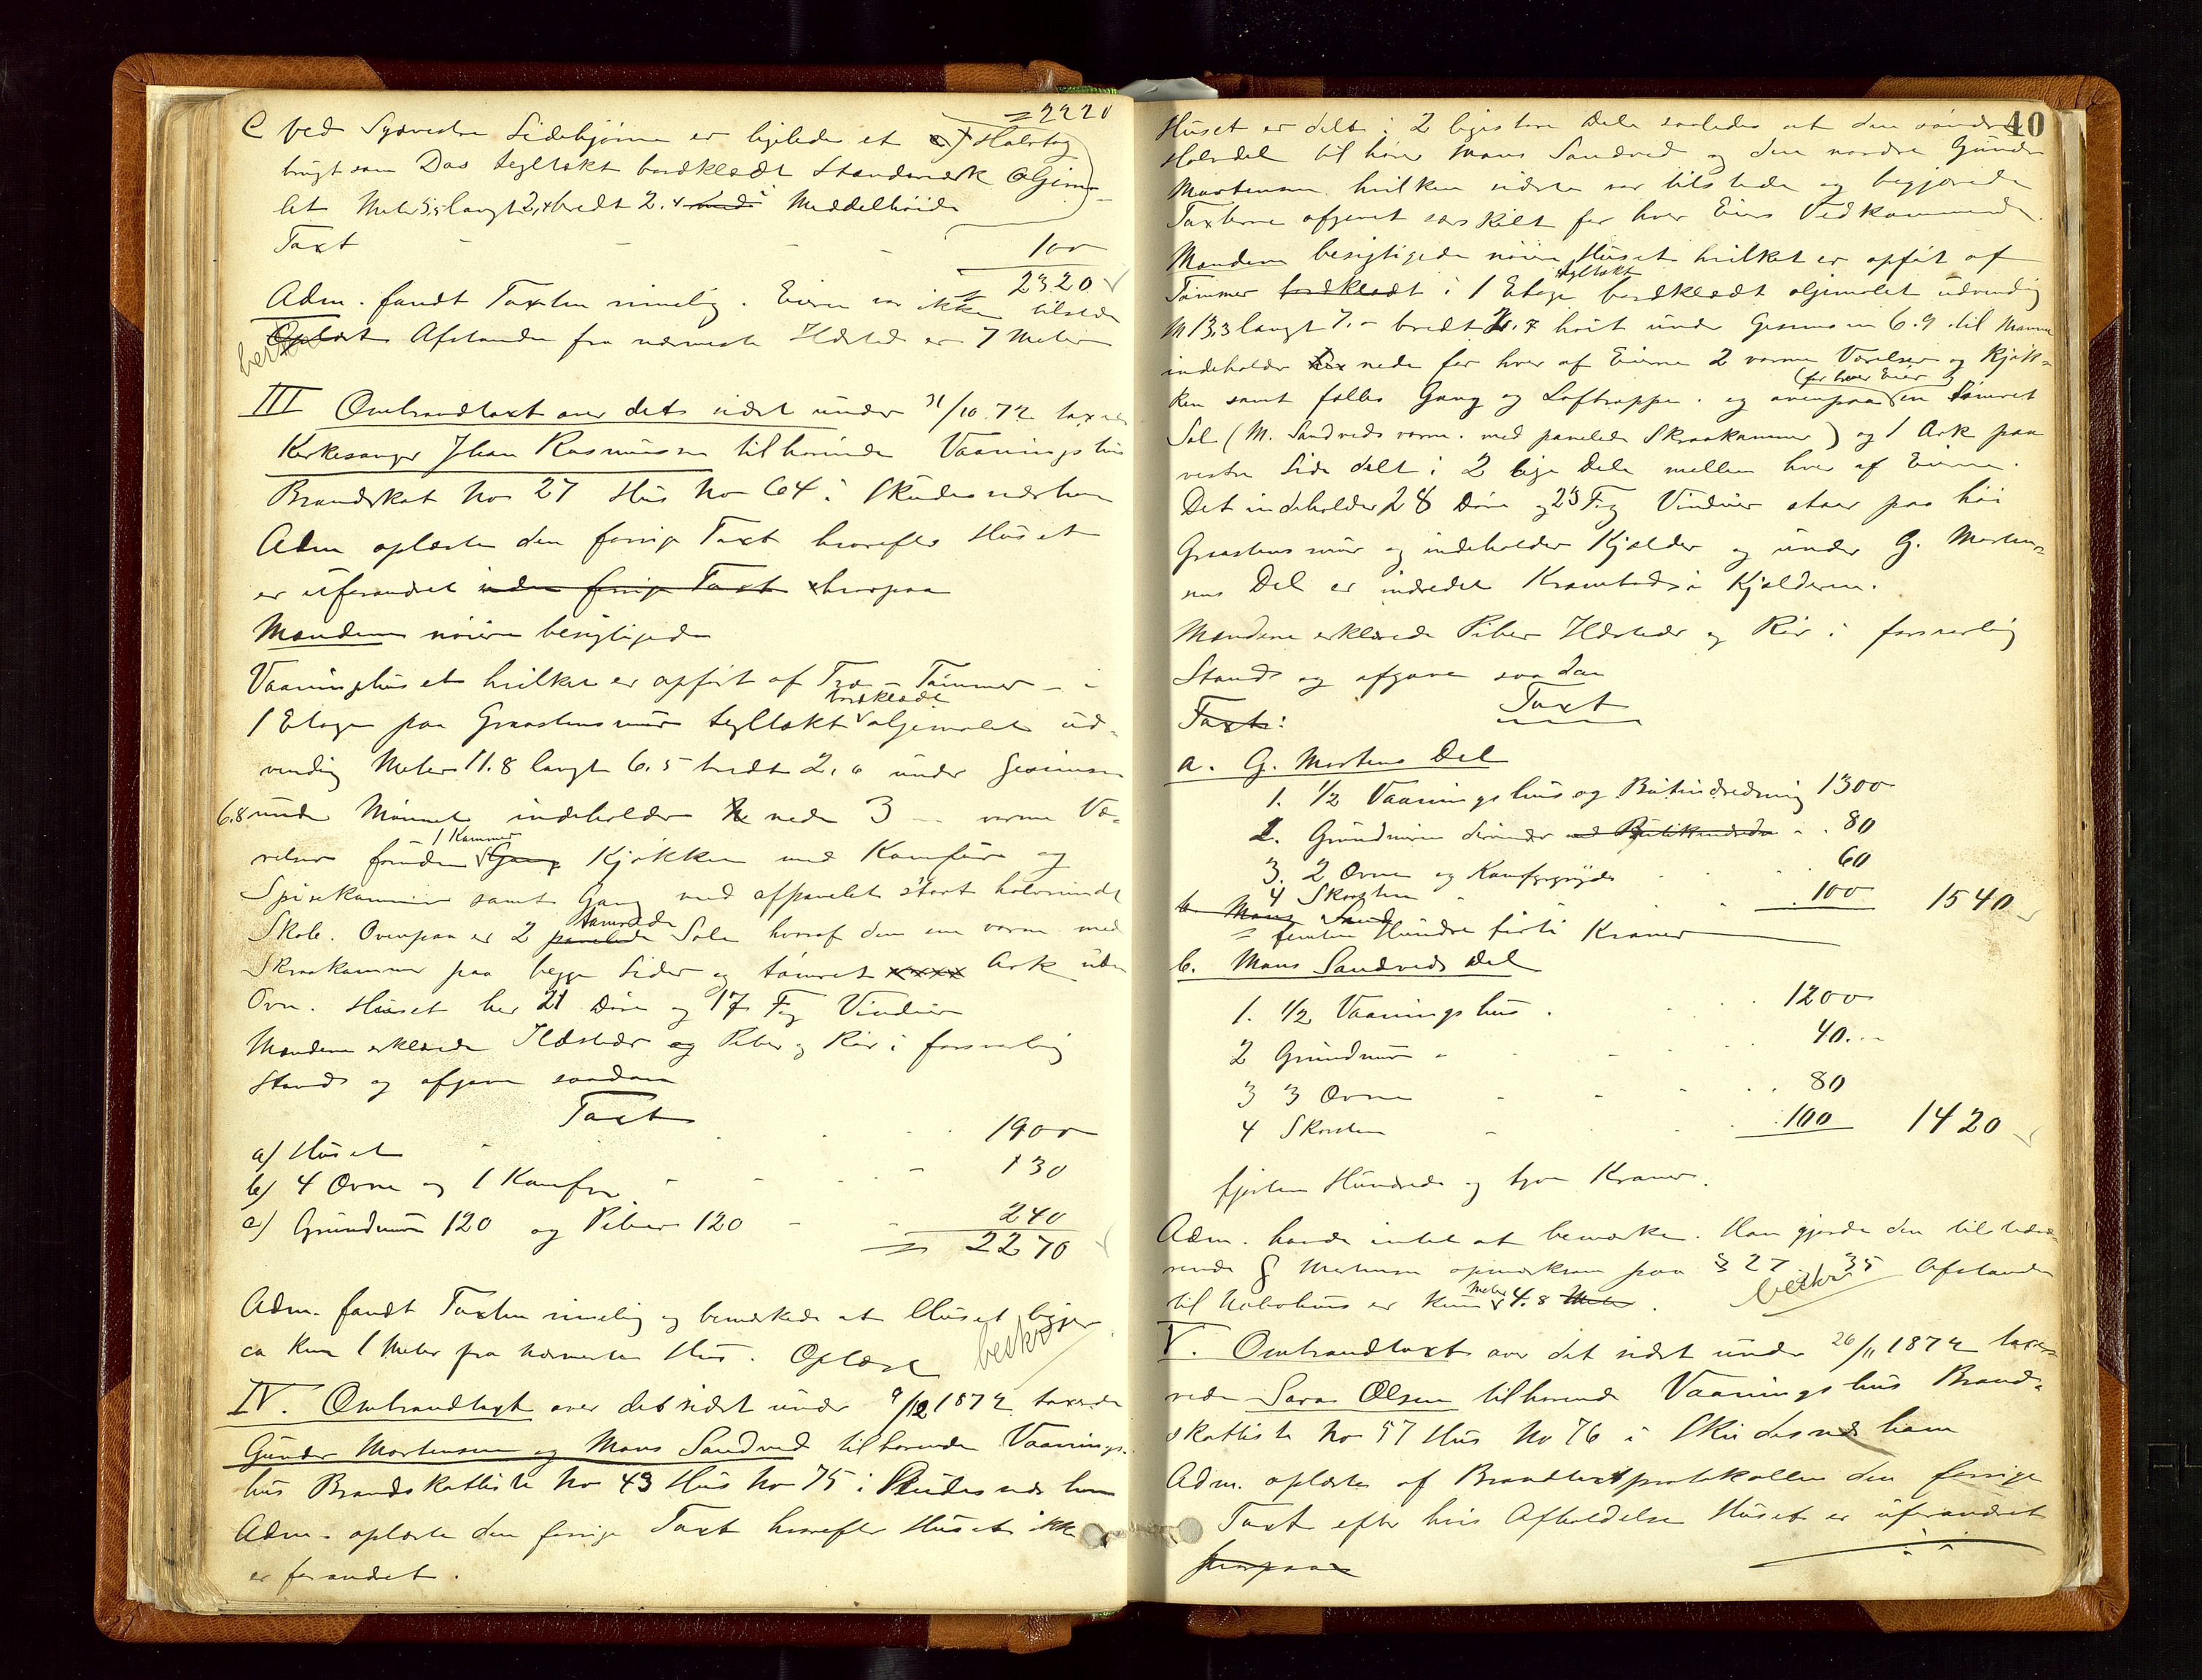 = 2220
C ved Sydvestre Sidehjørne er ligeledes et Halvtag
brugt som Das tegltækt bordklædt Standværk Oljema-
let Meter 5,5 langt 2,4 bredt 2.4 Middelhøide
Taxt - - - - 100
= 2320
Adm. fandt Taxten rimelig. Eieren var ikke tilstede
Oplæst Afstanden fra nærmeste Ildsted er 7 Meter
beskr
III Ombrandtaxt over det sidst under 31/10 72 taxerede
Kirkesanger Johan Rasmussen tilhørende Vaaningshus
Brandskat No 27 Hus No 64 i Skudesneshavn
Adm oplæste den forrige Taxt hvorefter Huset
er uforandret siden forrige Taxt hvorpaa
Mændene nøiere besigtigede
Vaaningshuset hvilket er opført af Træ - Tømmer - i
1 Etage paa Graastensmur tegltækt bordklædt oljemalet ud-
vendig Meter 11.8 langt 6.5 bredt 2.6 under Gesimsen
6.8 under Mønnet indeholder nede 3 varme Væ-
relser foruden 1 Kammer Gang Kjøkken med Komfur og
Spisekammer samt Gang med afpanelet stort halvrundt
Skab. Ovenpaa er 2 panelede tømrede Sale hvoraf den ene varm med
Skraakammer paa begge Sider og tømret Ark uden
Ovn. Huset har 21 Døre og 17 Fag Vinduer
Mændene erklærede Ildsteder og Piber og Rør i forsvarlig
Stand og afgave saadan
Taxt
a) Huset - - - 1900
b) 4 Ovne og 1 Komfur - - - 130
c) Grundmur 120 og Piber 120 - - 240
= 2270
Adm. fandt Taxten rimelig og bemærkede at Huset ligger
ca kun 1 Meter fra nærmeste Hus. Oplæst
beskr
IV. Ombrandtaxt over det sidst under 9/12 1872 taxerede
Gunder Mortensen og Mons Sandved tilhørende Vaanings-
hus Brandskatliste No 43 Hus No 75 i Skudesneshavn
Adm. oplæste den forrige Taxt hvorefter Huset ikke
er forandret.
40
Huset er delt i 2 ligestore Dele saaledes at den søndre
Halvdel tilhører Mons Sandved og den nordre Gunder
Mortensen hvilken sidste var tilstede og begjærede
Taxterne afgivet særskilt for hver Eiers Vedkommende.
Mændene besigtigede nøiere Huset hvilket er opført af
Tømmer bordklædt i 1 Etage tegltækt bordklædt oljemalet udvendig
M 13,3 langt 7.- bredt 2.7 høit under Gesimsen 6.9 til Mønne
indeholder nede for hver af Eierne 2 varme Værelser og Kjøk-
ken samt fælles Gang og Lofttrappe. og ovenpaa (for hver Eier) en tømret
Sal (M. Sandveds varm. med panelede Skraakammer) og 1 Ark paa
vestre Side delt i 2 lige Dele mellem hver af Eierne.
Det indeholder 28 Døre og 23 Fag Vinduer staar paa høi
Graastensmur og indeholder Kjælder og under G. Morten-
sens Del er indredet Krambod i Kjælderen.
Mændene erklærede Piber Ildsteder og Rør i forsvarlig
Stand og afgave saadan
Taxt:
Taxt
a. G. Mortens Del
1. 1/2 Vaaningshus og Butindredning 1300
2. Grundmuren derunder med Butikindredn. 80
3. 2 Ovne og Komfyr 60
4 Skorsten 100 1540
b. Mons Sand
= femten Hundre firti Kroner
b. Mons Sandveds Del
1. 1/2 Vaaningshus . . . 1200
2 Grundmur - - - 40.-
3 3 Ovne - - - 80
4 Skorsten - - - 100 1420
fjorten Hundrede og tyve Kroner.
Adm. havde intet at bemærke. Han gjorde den tilstedevæ-
rende G Mortensen opmærksom paa § 27 35 Afstanden
til Nabohus er kun Meter 4.8 Meter.
beskr
V. Ombrandtaxt over det sidst under 26/11 1872 taxe-
rede Saras Olsen tilhørende Vaaningshus Brand-
skatliste No 57 Hus No 76 i Skudesneshavn
Adm. oplæste af Brandtaxtprotokollen den forrige
Taxt efter hvis Afholdelse Huset er uforandret
hvorpaa